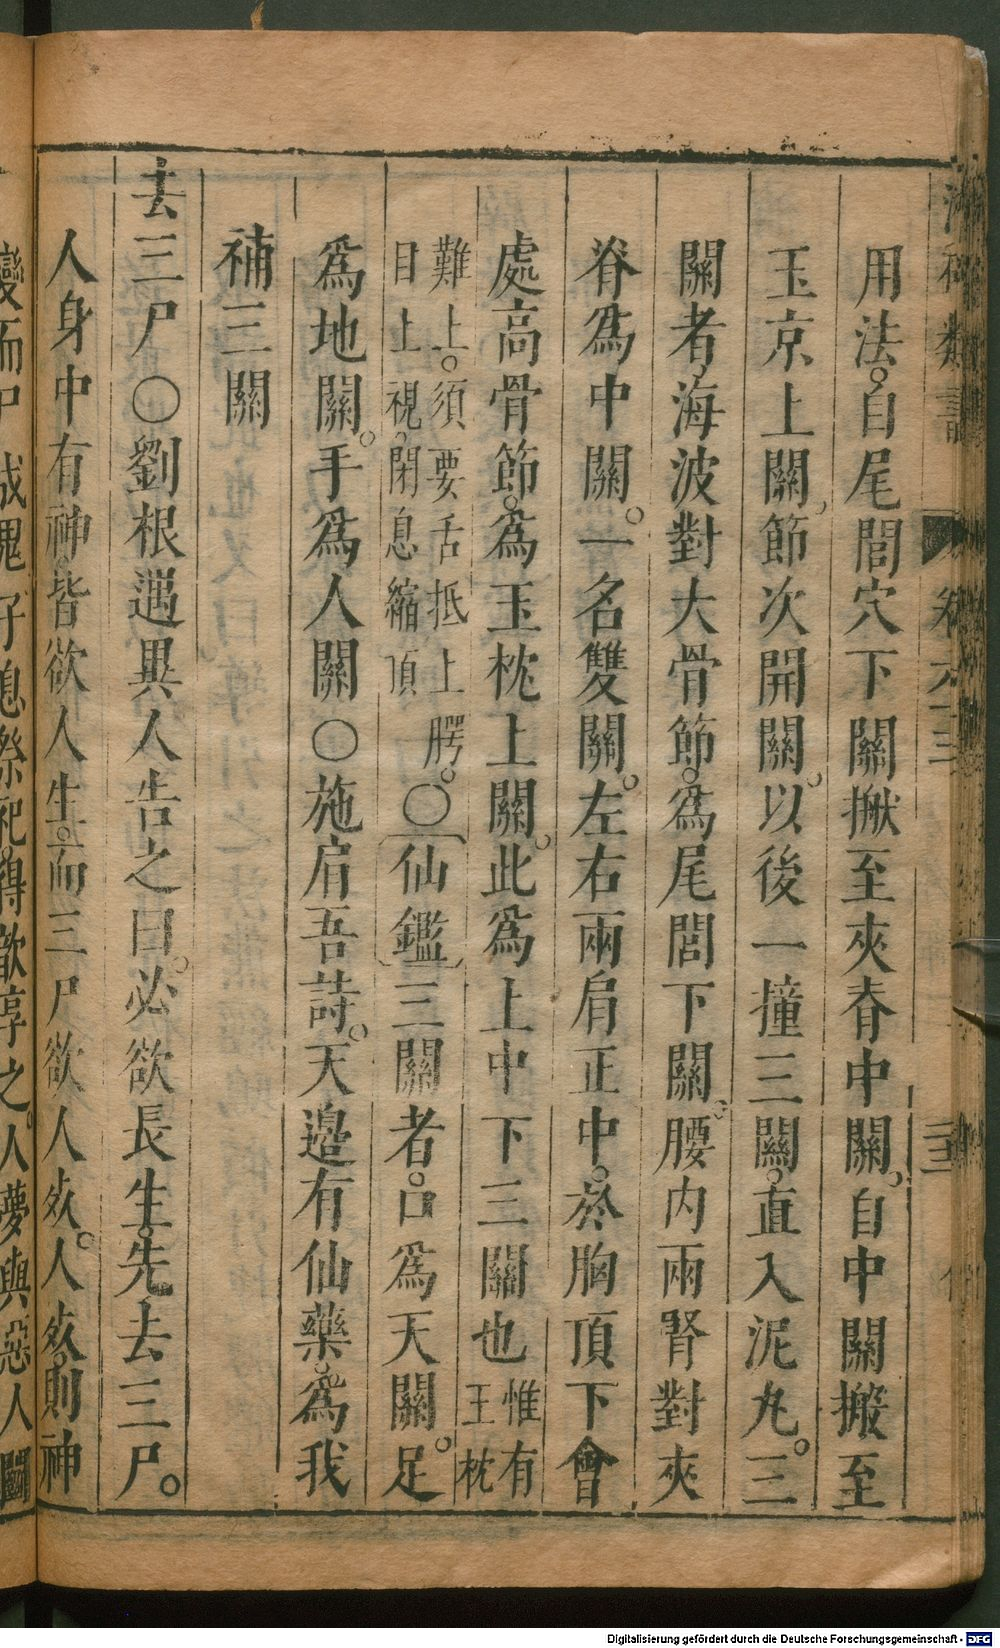 用法自尾閭穴下關搬至夾脊中關自中關搬至
玉京上關節次開關以後一撞三關直入泥丸三
關者海波對大骨節爲尾閭下關腰内兩腎對夾
脊爲中關一名雙關左右兩肩正中於胸頂下會
處高骨節爲玉枕上關此爲上中下三關也惟有玉枕
難上須要舌抵上腭
目上視閉息縮頂
○仙鑑三關者口爲天關足
爲地關手爲人關○施肩吾詩天邉有仙藥爲我
補三關
去三尸○劉根遇異人告之曰必欲長生先去三尸
人身中有神皆欲人生而三尸欲人死人死則神
變而
成鬼子息祭祀得歆享之人夢與惡人鬪
卷六十三
Digitalisierung gefördert durch die Deutsche Forschungsgemeinschaft - DFG